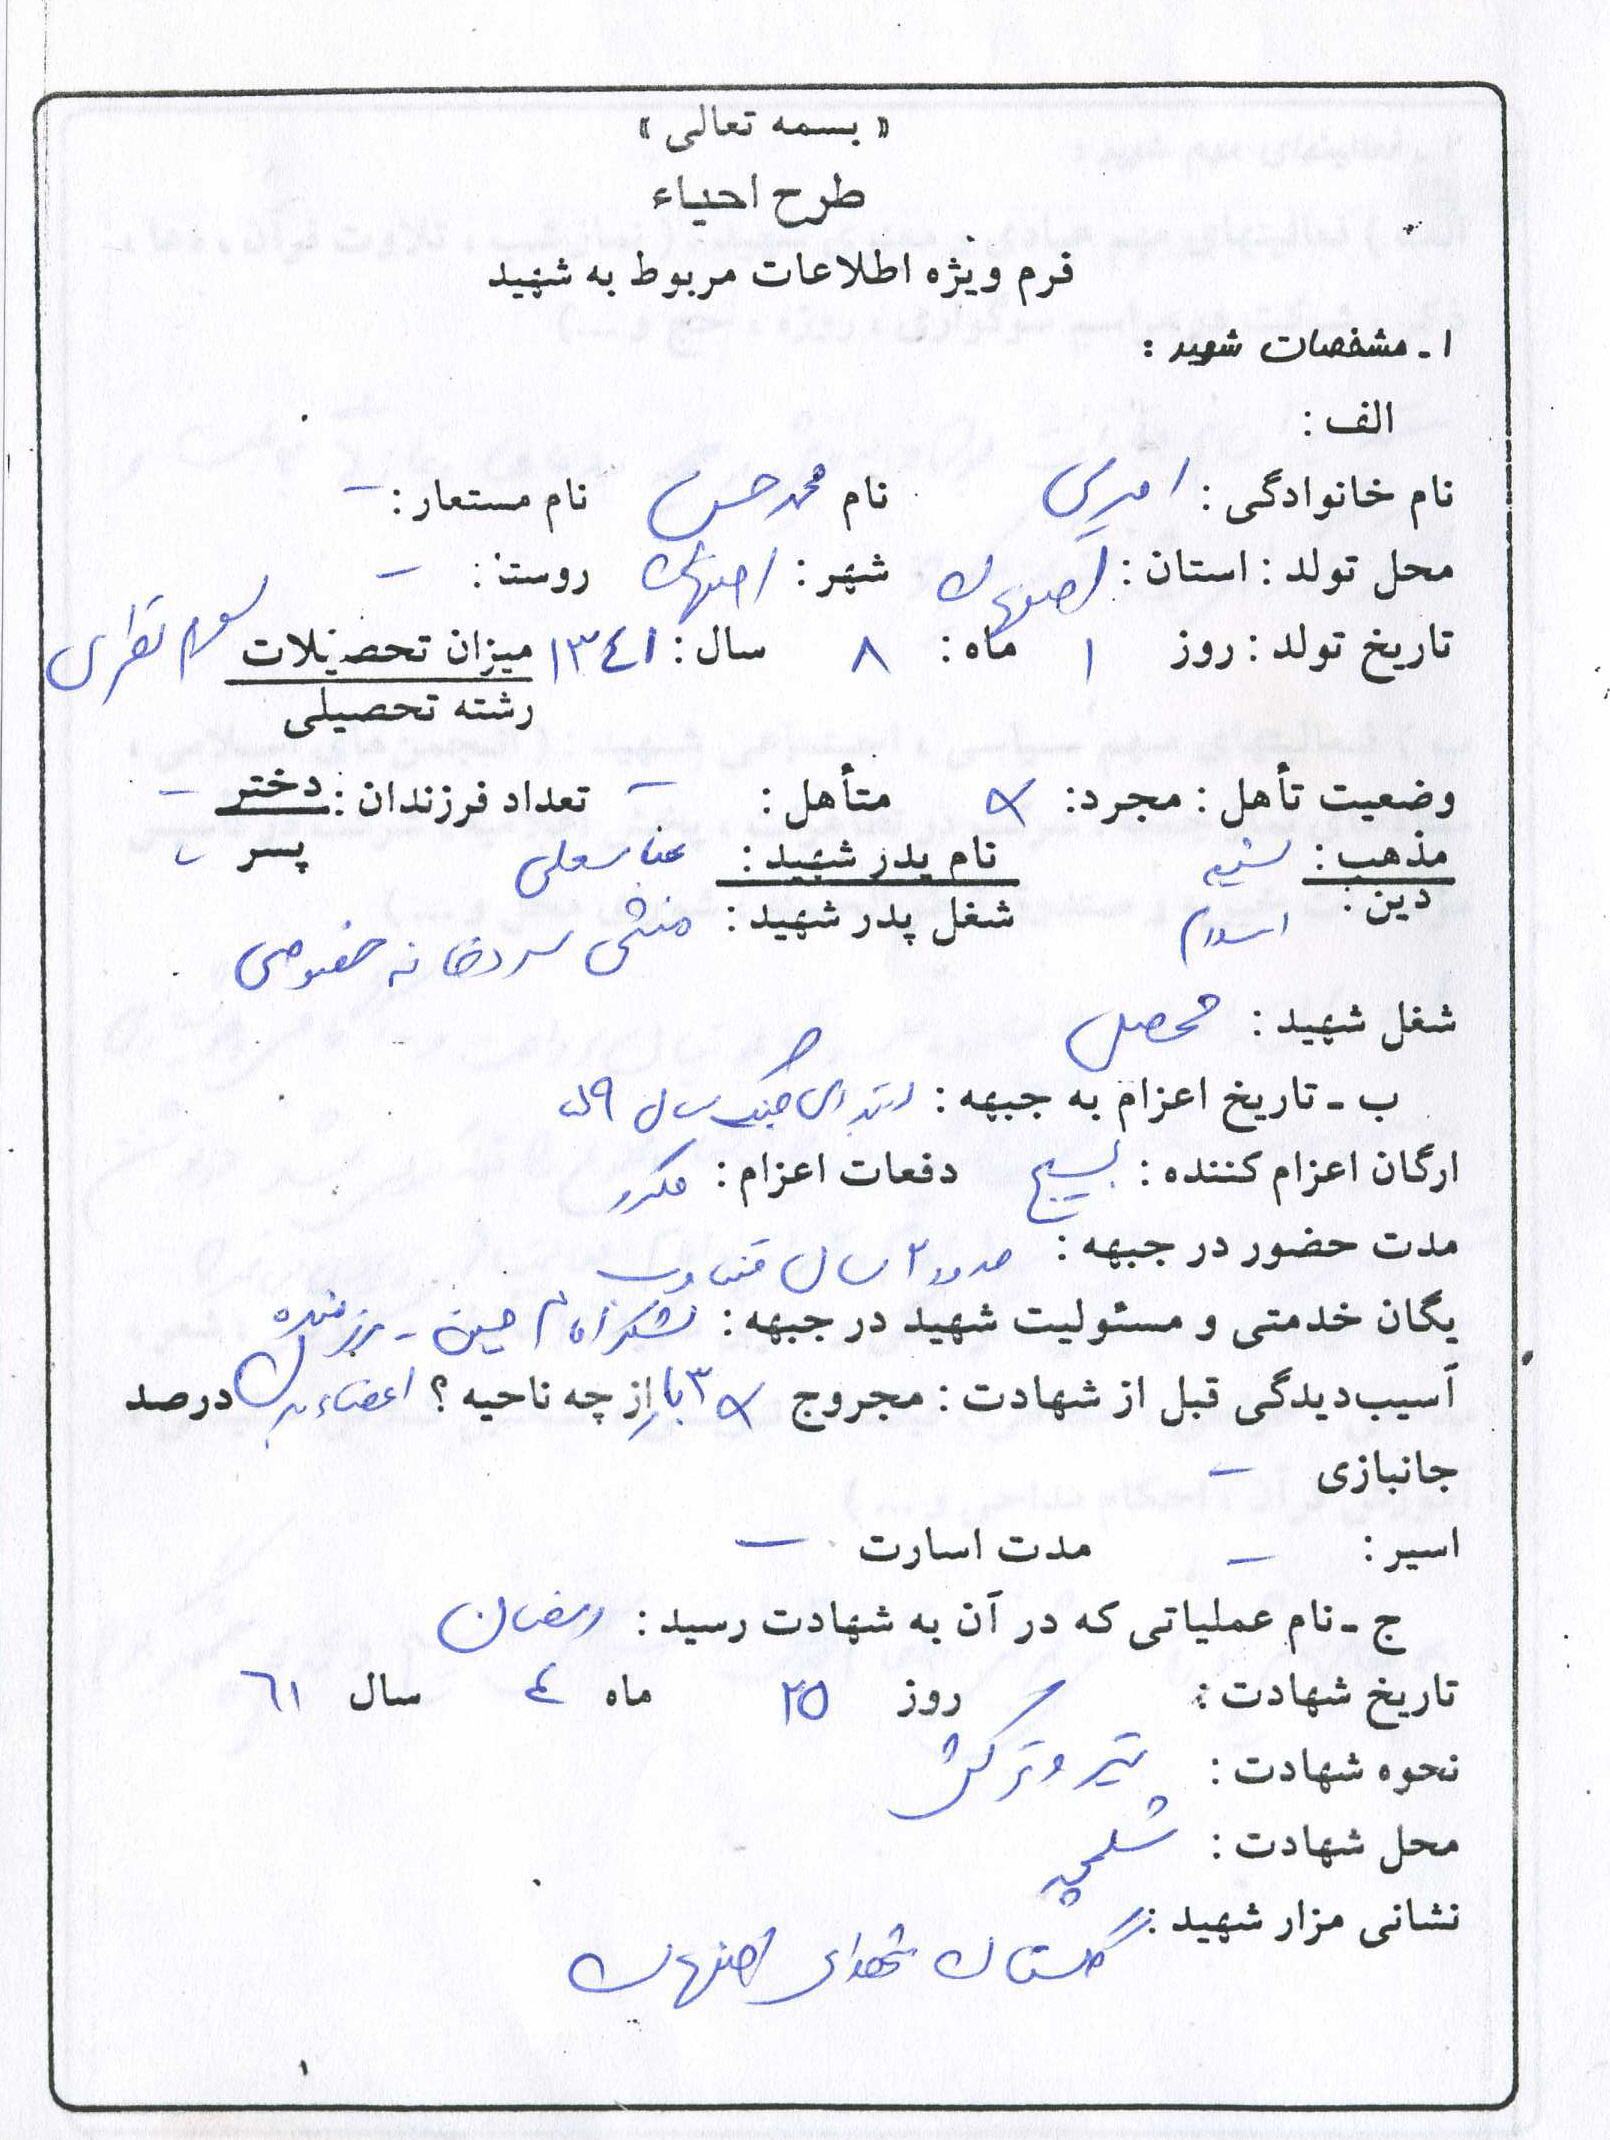 « بسمه تعالی »
طرح احیاء
فرم ویژه اطلاعات مربوط به شهید
۱ـ مشخصات شهید :
الف :
نام خانوادگی : امیری نام محمد حسن نام مستعار : –
محل تولد : استان : اصفهان شهر : اصفهان روستا : –
تاریخ تولد : روز ۱ ماه : ۸ سال : ۱۳٤۱ میزان تحصیلات سوم نظری
رشته تحصیلی
وضعیت تأهل : مجرد : × متأهل : – تعداد فرزندان : دختر –
مذهب : شیعه نام پدر شهید : عباسعلی پسر –
دین : اسلام شغل پدر شهید : منشی سردخانه خصوصی
شغل شهید : محصل
ب ـ تاریخ اعزام به جبهه : ابتدای جنگ سال ۵۹
ارگان اعزام کننده : بسیج دفعات اعزام : مکرر
مدت حضور در جبهه : حدود ۲ سال متناوب
یگان خدمتی و مسئولیت شهید در جبهه : لشکر امام حسین – رزمنده
آسیب‌دیدگی قبل از شهادت : مجروح × ۳ بار از چه ناحیه ؟ اعضاء بدن درصد
جانبازی –
اسیر : – مدت اسارت –
ج ـ نام عملیاتی که در آن به شهادت رسید : رمضان
تاریخ شهادت : روز ۲۵ ماه ٤ سال ٦۱
نحوه شهادت : تیر و ترکش
محل شهادت : شلمچه
نشانی مزار شهید : گلستان شهدای اصفهان
۱